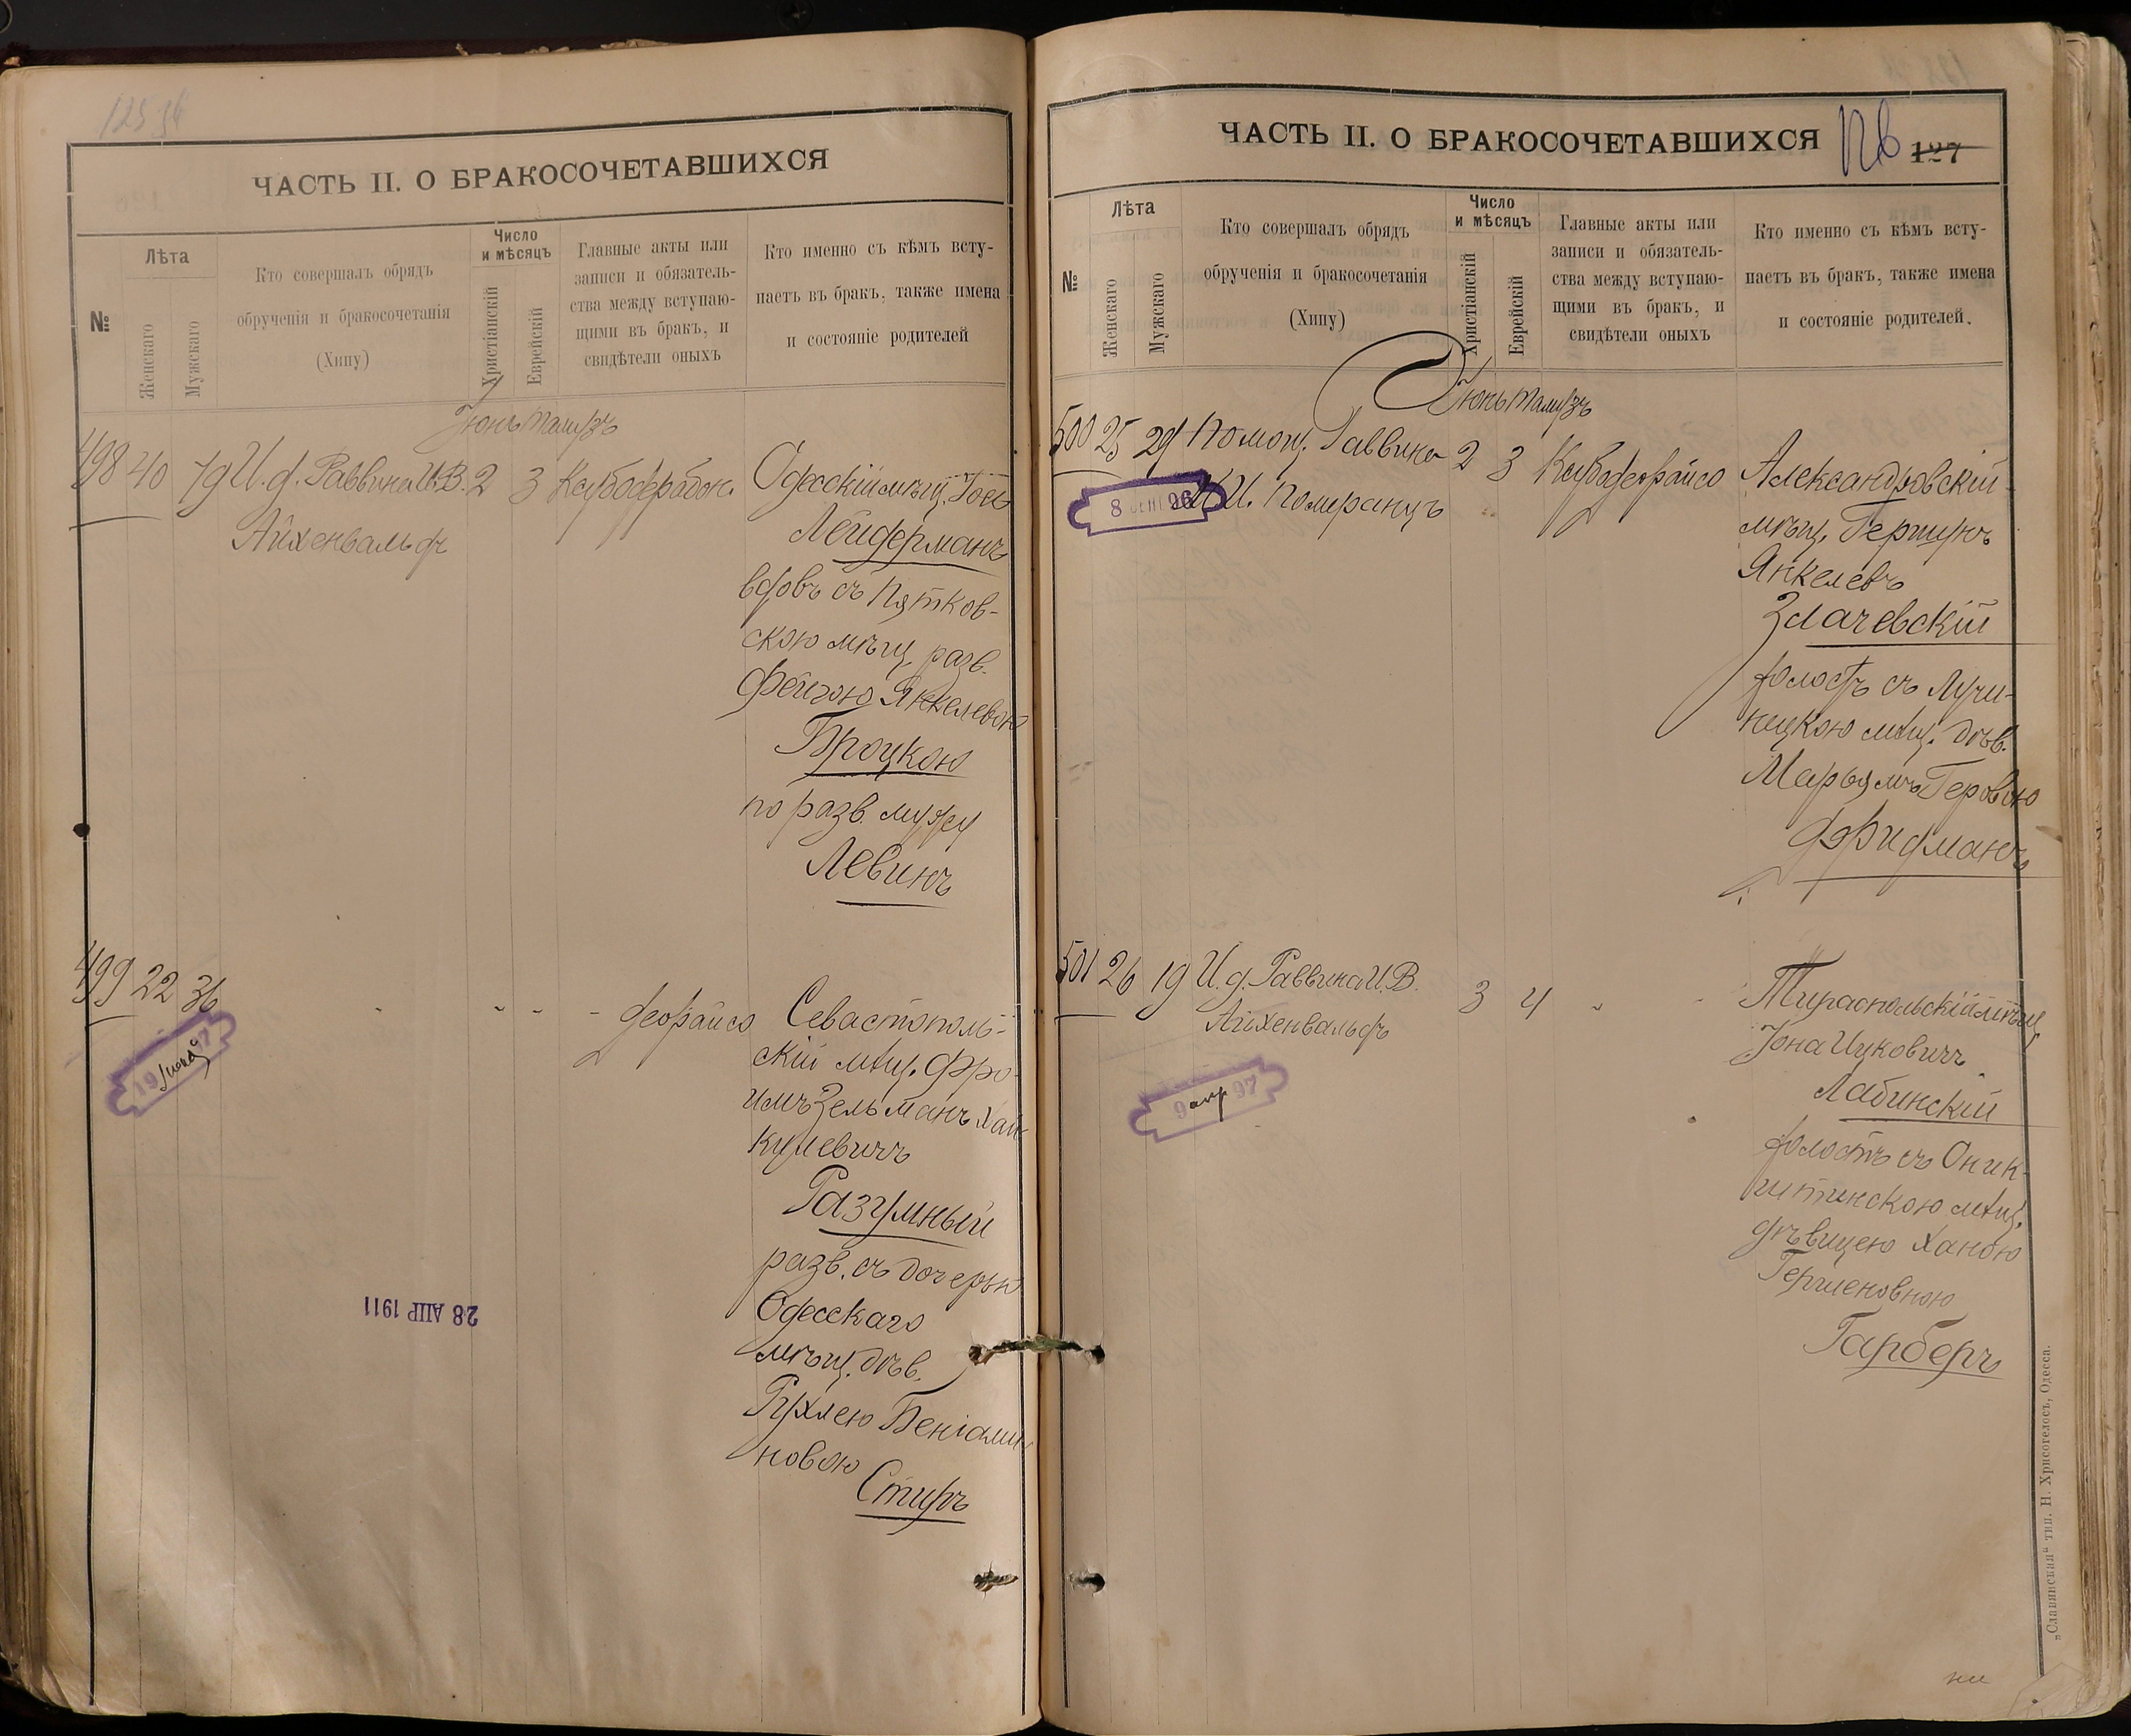 125 об
ЧАСТЬ II. О БРАКОСОЧЕТАВШИХСЯ
№
Лѣта
Женскаго
Мужскаго
Кто совершалъ обрядъ
обрученія и бракосочетанія
(Хипу)
Число
и мѣсяцъ
Христіанскій
Еврейскій
Главные акты или
записи и обязатель-
ства между вступаю-
щими въ бракъ, и
свидѣтели оныхъ
Кто именно съ кѣмъ всту-
паетъ въ бракъ, также имена
и состояніе родителей
Іюнь Тамузъ
498 40 И. д. Раввина И.В. 2 3
Айхенвальдъ
Одесскій мѣщ.
Лейдерманъ
вдовъ съ Пятков-
скою мѣщ. разв.
Фейгою Янкелевою
Броцкою
по разв. мужу
Левинъ
499 22 36
19 97
28 АПР 1911
Севастополь-
скій мѣщ. Фро-
имъ Зельманъ Хай
келевичъ
Разумный
разв. съ дочерью
Одесскаго
мѣщ. дѣв.
Рухлею Беніами
новою
Стиръ
ЧАСТЬ II. О БРАКОСОЧЕТАВШИХСЯ
126 127
№
Лѣта
Женскаго
Мужскаго
Кто совершалъ обрядъ
обрученія и бракосочетанія
(Хипу)
Число
и мѣсяцъ
Христіанскій
Еврейскій
Главные акты или
записи и обязатель-
ства между вступаю-
щими въ бракъ, и
свидѣтели оныхъ
Кто именно съ кѣмъ всту-
паетъ въ бракъ, также имена
и состояніе родителей.
Іюнь Тамузъ
500 25 29 Помощ. Раввина 2 3
И. Померанцъ
8 СЕН 96
Александровскій
мѣщ. Гершунъ
Янкелевъ
Злачевскій
холостъ съ Лучи-
нецкою мѣщ. дѣв.
Марьямъ Геровою
Фридманъ
501 26 19 И. д. Раввина И.В. 3 4
Айхенвальдъ
9 апр 97
Тираспольскій мѣщ.
Іона Ицковичъ
Лабинскій
холостъ съ Оник-
штинскою мѣщ.
дѣвицею Ханою
Гершеновною
Гарберъ
„Славянская“ тип. Н. Хрисогелосъ, Одесса.